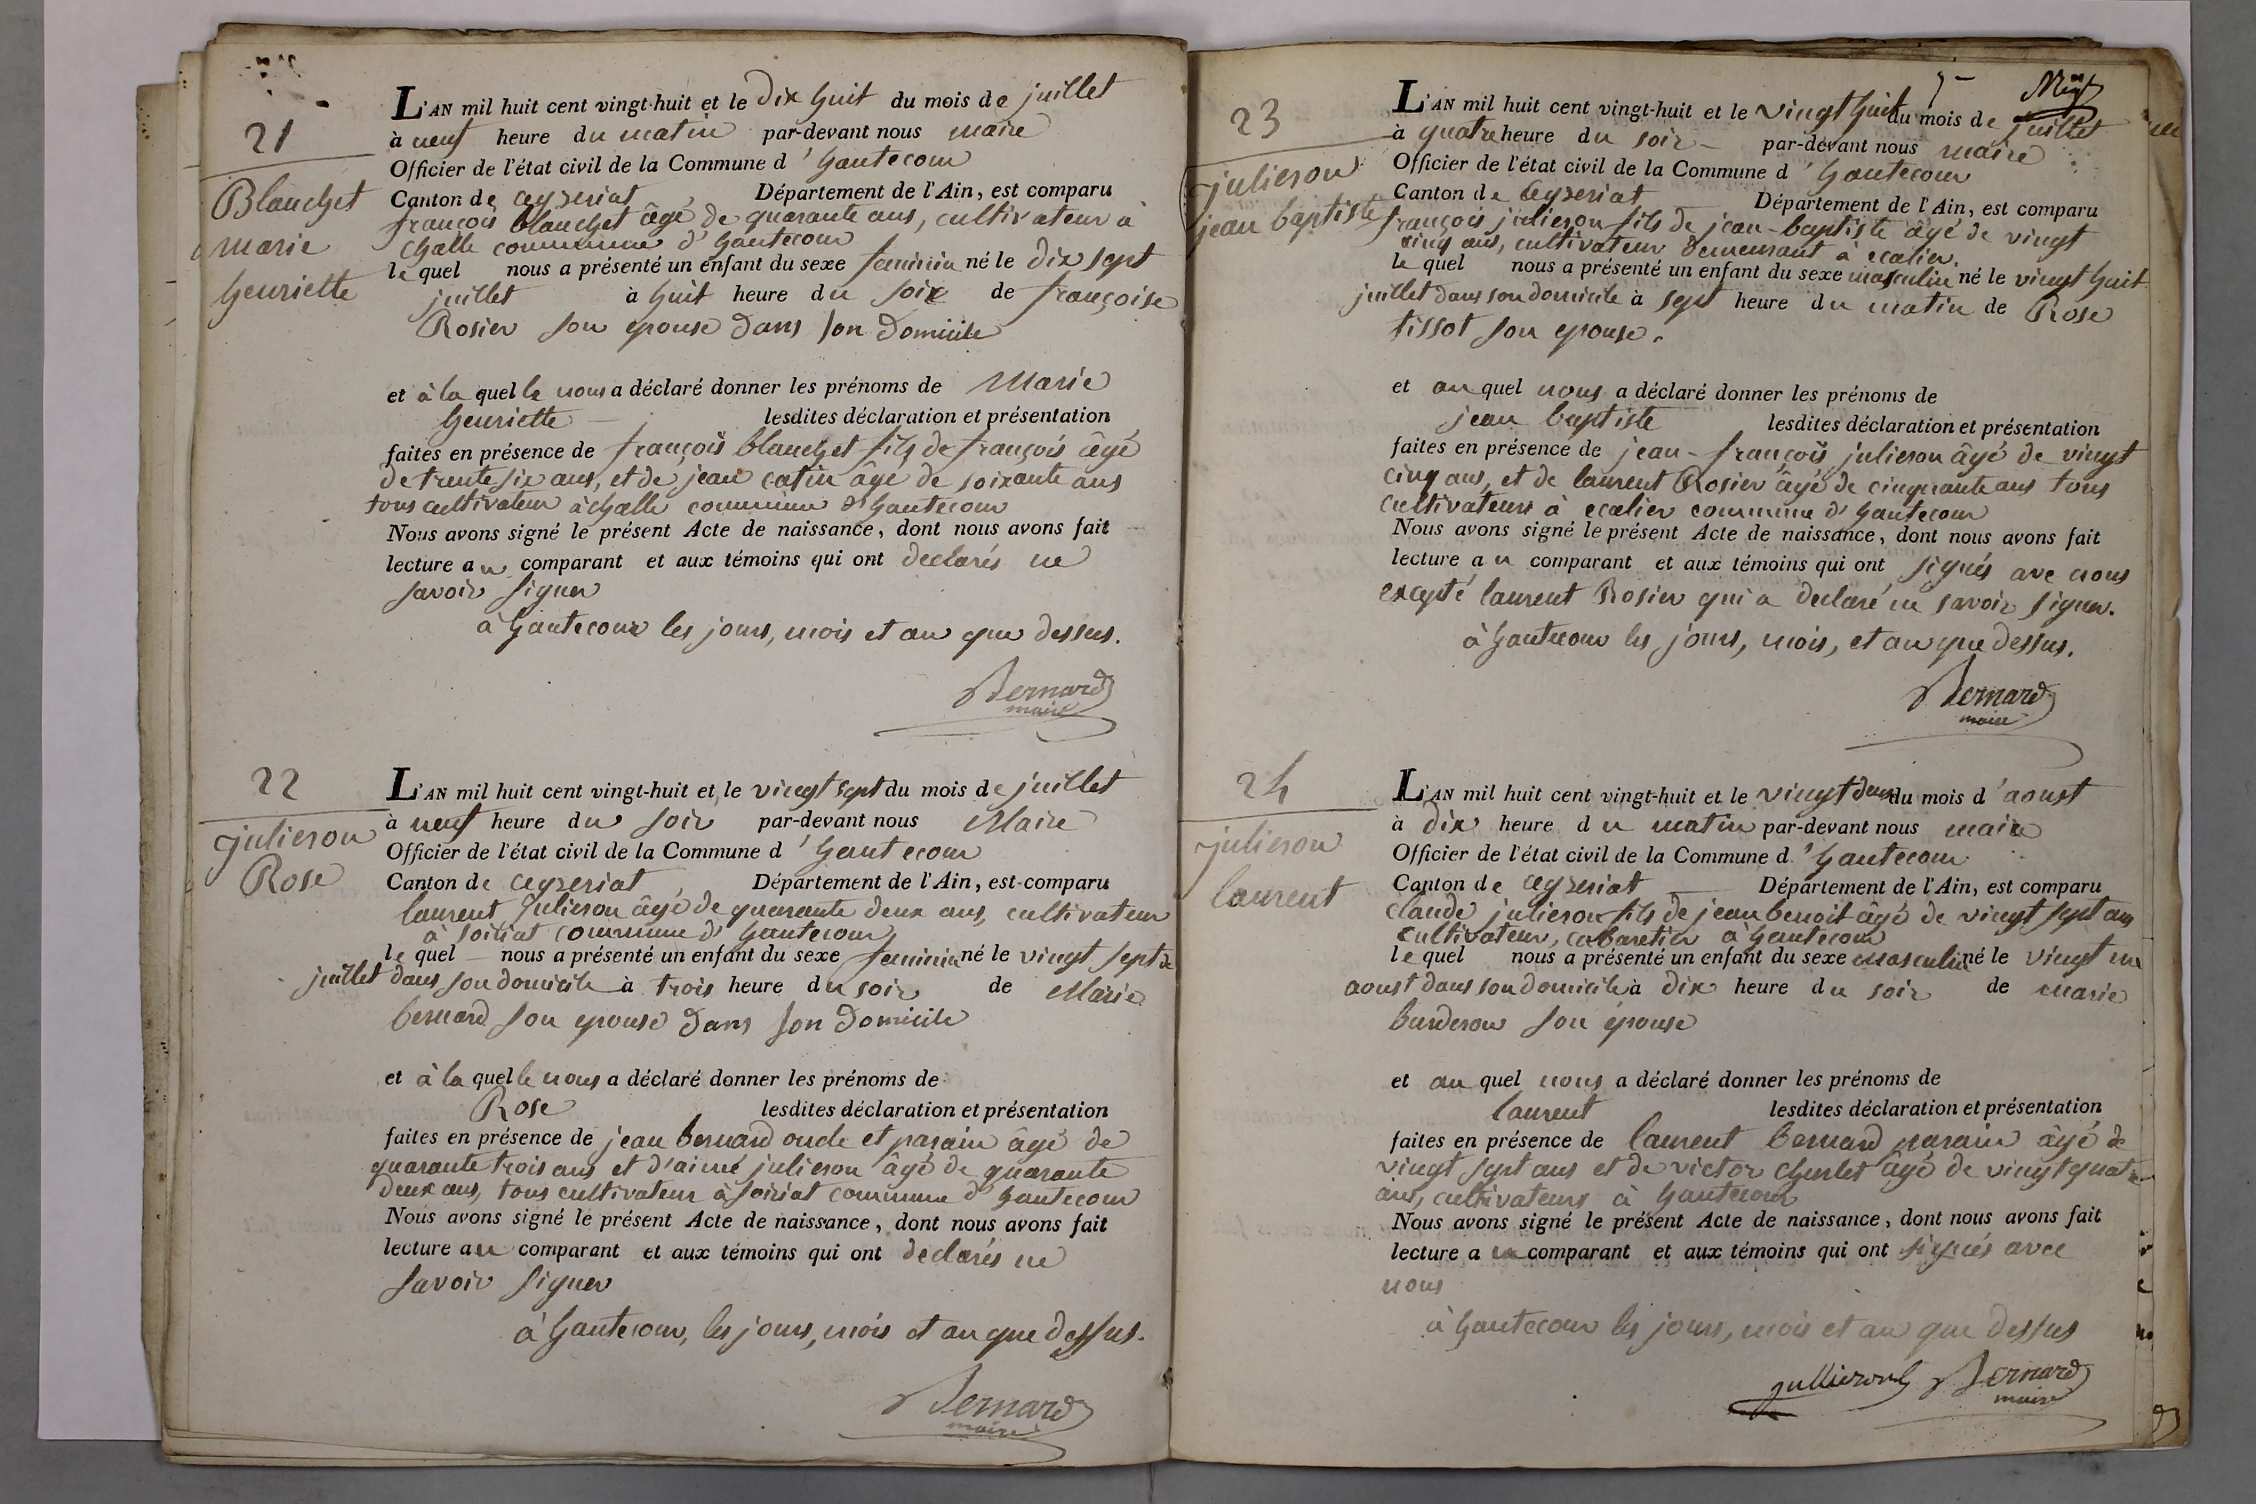 21
Blanchet
marie
henriette
L'AN mil huit cent vingt-huit et le dix huit du mois de juillet
à neuf heure du matin par-devant nous maire
Officier de l'état civil de la Commune d'hautecour
Canton de ceyzeriat, Département de l'Ain, est comparu
françois blanchet âgé de quarante ans, cultivateur à
challe commune d'hautecour
le quel nous a présenté un enfant du sexe feminin né le dix sept
juillet à huit heure du soir de françoise
Rosier son epouse dans son domicile
et à la quelle nous a déclaré donner les prénoms de Marie
henriette lesdites déclaration et présentation
faites en présence de françois blanchet fils de françois âgé
de trente six ans, et de jean catin âgé de soixante ans
tous cultivateur à challe commune d'hautecour
Nous avons signé le présent Acte de naissance, dont nous avons fait
lecture au comparant et aux témoins qui ont declarés ne
savoir signer
à hautecour les jours, mois et an que dessus.
Bernard
maire
22
julieron
Rose
L'AN mil huit cent vingt-huit et le vingt sept du mois de juillet
à neuf heure du soir par-devant nous Maire
Officier de l'état civil de la Commune d'hautecour
Canton de ceyzeriat, Département de l'Ain, est comparu
laurent Julieron âgé de quarante deux ans, cultivateur
à soiriat commune d'hautecour
le quel nous a présenté un enfant du sexe feminin né le vingt sept de
juillet dans son domicile à trois heure du soir de Marie
bernard son epouse dans son domicile
et à la quelle nous a déclaré donner les prénoms de
Rose lesdites déclaration et présentation
faites en présence de jean bernard oncle et parain âgé de
quarante trois ans et d'aimé julieron âgé de quarante
deux ans, tous cultivateur à soiriat commune d'hautecour
Nous avons signé le présent Acte de naissance, dont nous avons fait
lecture au comparant et aux témoins qui ont declarés ne
savoir signer
à hautecour, les jours, mois et an que dessus.
Bernard
maire
23
julieron
jean baptiste
L'AN mil huit cent vingt-huit et le vingt huit du mois de juillet
à quatre heure du soir par-devant nous maire
Officier de l'état civil de la Commune d'hautecour
Canton de Ceyzeriat Département de l'Ain, est comparu
françois julieron fils de jean-baptiste âgé de vingt
cinq ans, cultivateur demeurant à ecalier.
le quel nous a présenté un enfant du sexe masculin né le vingt huit
juillet dans son domicile à sept heure du matin de Rose
tissot son epouse.
et au quel nous a déclaré donner les prénoms de
jean baptiste lesdites déclaration et présentation
faites en présence de jean-françois julieron âgé de vingt
cinq ans, et de laurent Rosier âgé de cinquante ans tous
cultivateurs à ecalier commune d'hautecour
Nous avons signé le présent Acte de naissance, dont nous avons fait
lecture au comparant et aux témoins qui ont signés avec nous
excepté laurent Rosier qui a declaré ne savoir signer.
à hautecour les jours, mois, et an que dessus.
Bernard
maire
24
julieron
laurent
L'AN mil huit cent vingt-huit et le vingt deux du mois d'aoust
à dix heure du matin par-devant nous maire
Officier de l'état civil de la Commune d'hautecour
Canton de ceyzeriat Département de l'Ain, est comparu
claude julieron fils de jean benoit âgé de vingt sept ans
cultivateur, cabaretier à hautecour
le quel nous a présenté un enfant du sexe masculin né le vingt un
aoust dans son domicile à dix heure du soir de marie
burderon son épouse
et au quel nous a déclaré donner les prénoms de
laurent lesdites déclaration et présentation
faites en présence de laurent bernard parain âgé de
vingt sept ans et de victor âgé de vingt quatre
ans, cultivateurs à hautecour
Nous avons signé le présent Acte de naissance, dont nous avons fait
lecture au comparant et aux témoins qui ont signés avec
nous
à hautecour les jours, mois et an que dessus
Bernard
maire